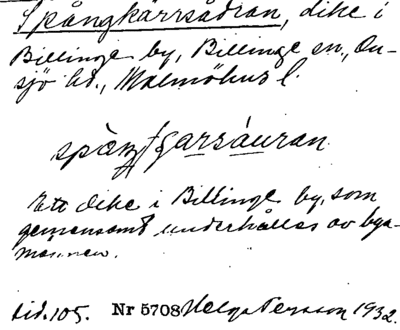 Spångkärrsådran, dike i
Billinge by, Billinge sn., On-
sjö hd., Malmöhus l.
Ett dike i Billinge by, som
gemensamt underhålles av bya-
männen.
sid. 105. Nr 5708 Helge Persson 1932.